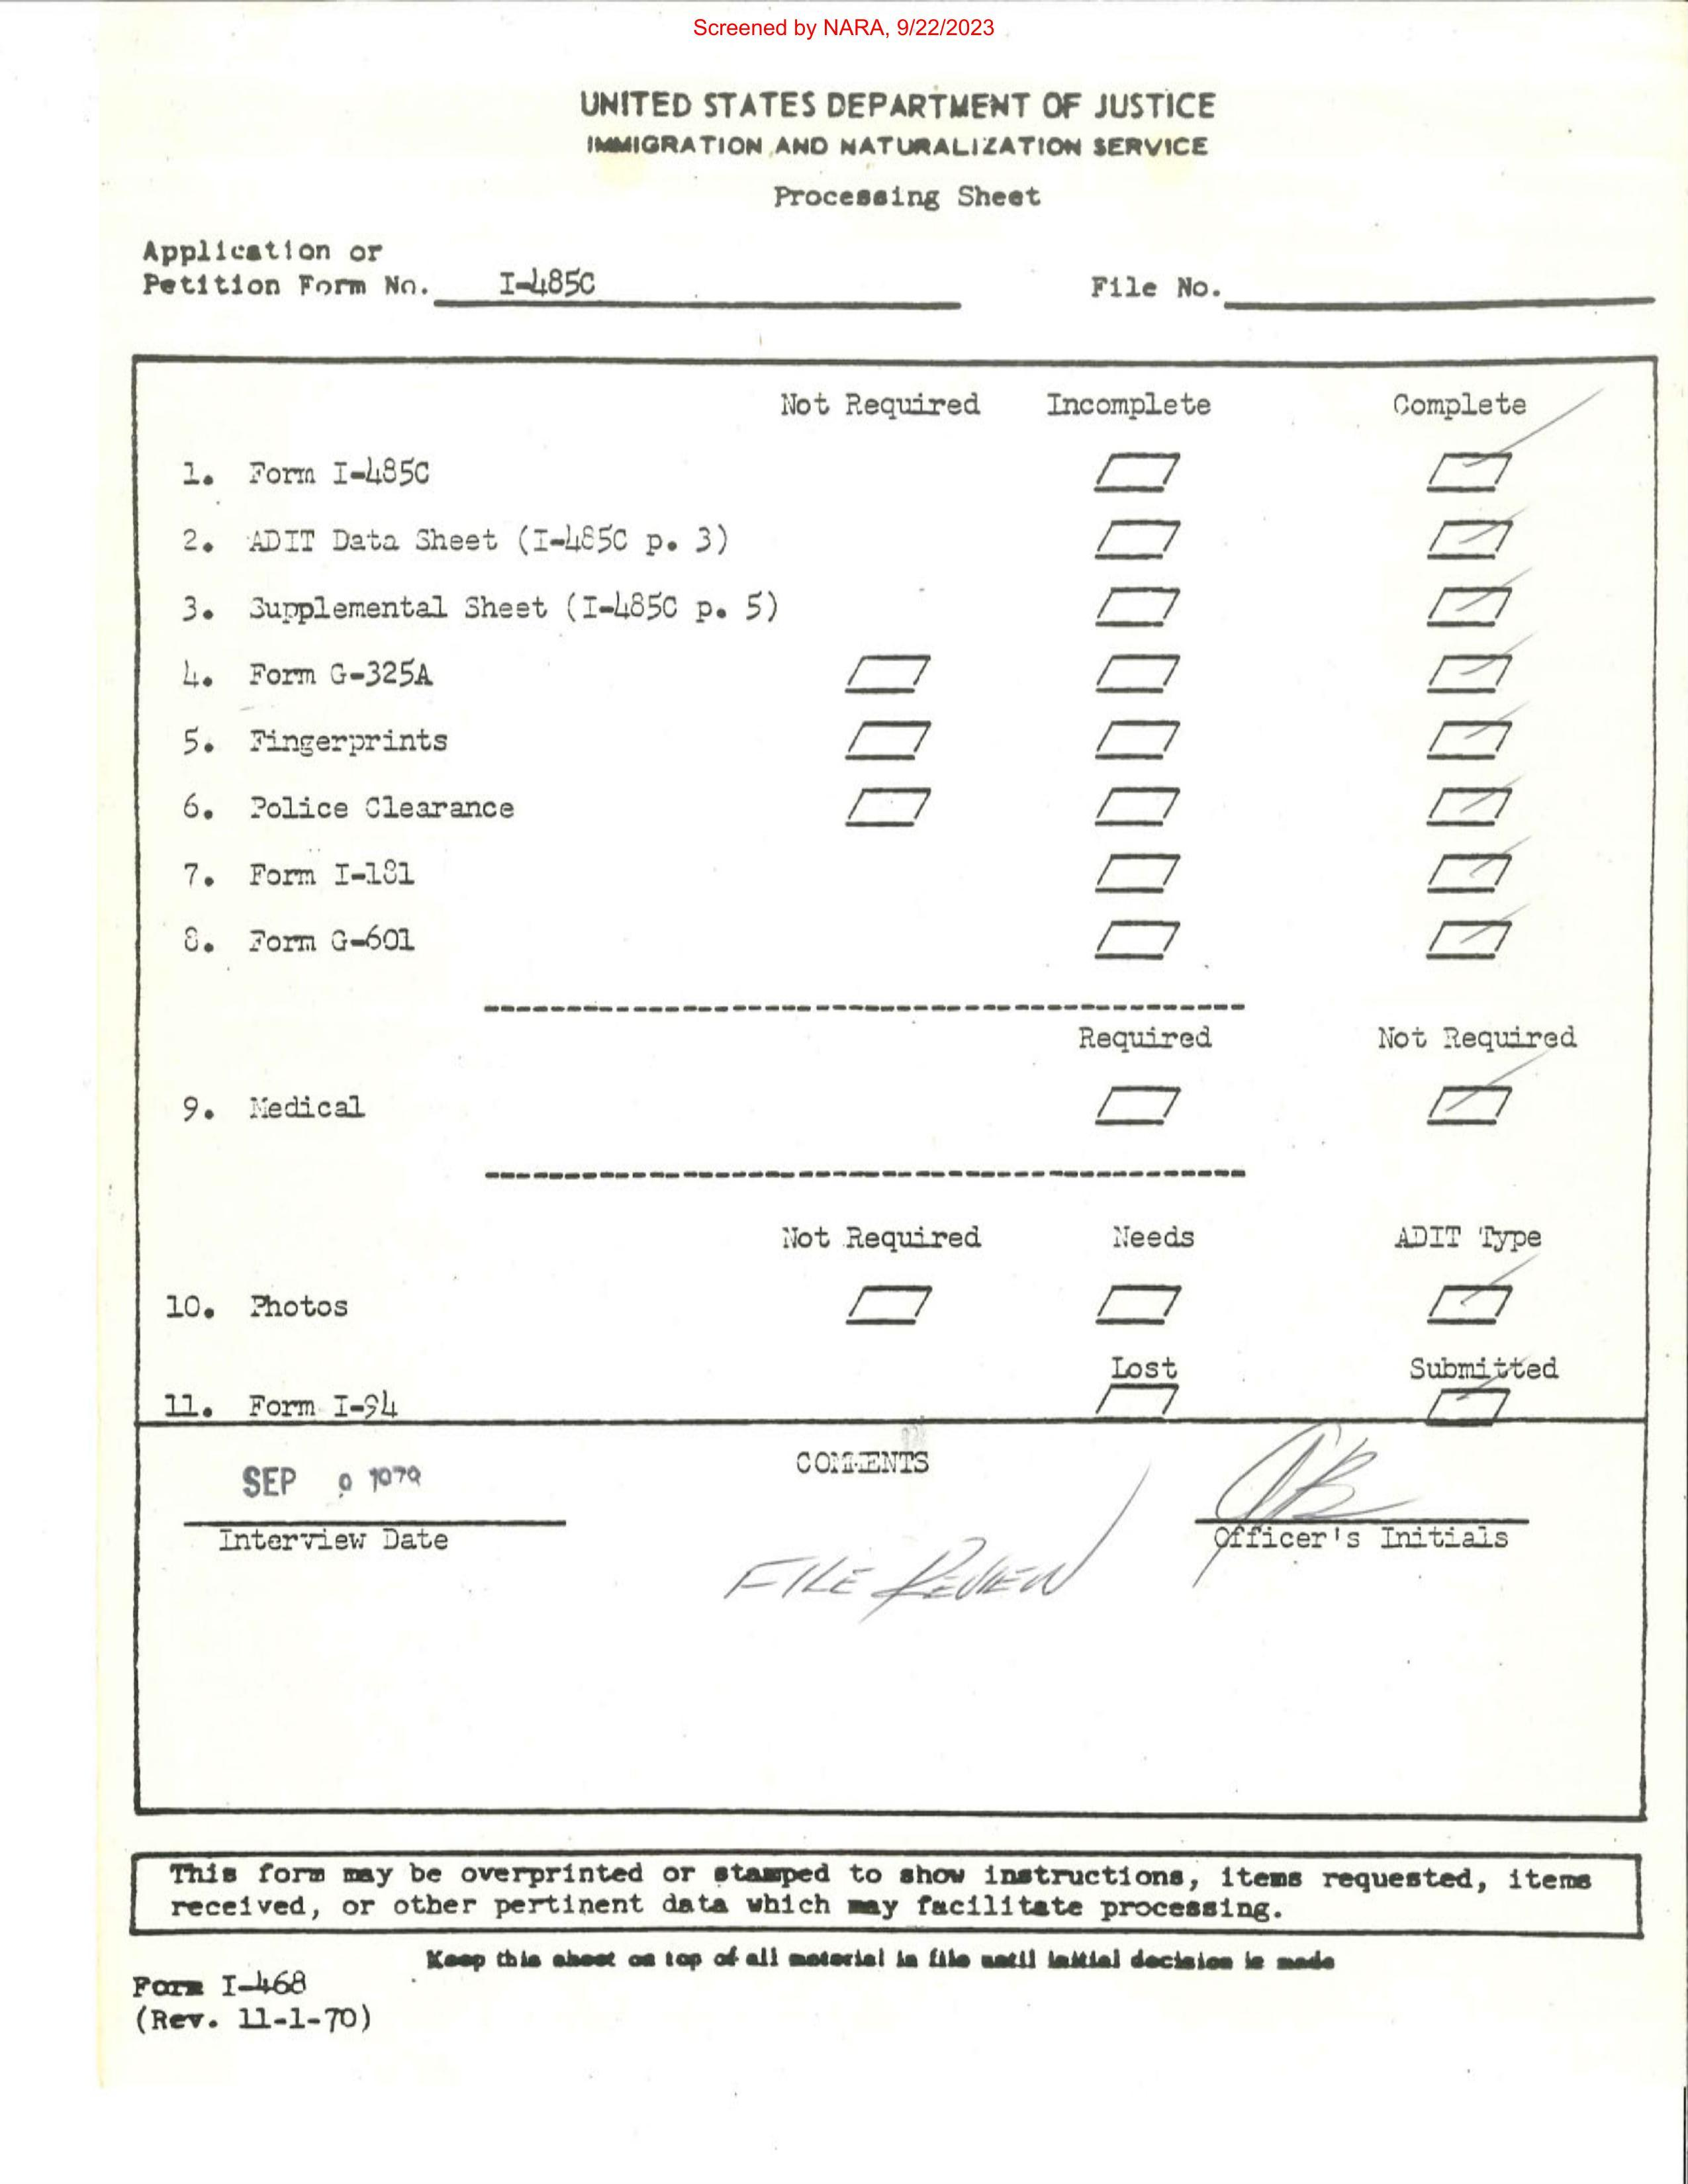 Screened by NARA, 9/22/2023
UNITED STATES DEPARTMENT OF JUSTICE
IMMIGRATION AND NATURALIZATION SERVICE
Processing Sheet
Application or
Petition Form No. I-485C File No.
Not Required Incomplete Complete
1. Form I-485C
2. ADIT Data Sheet (I-485C p. 3)
3. Supplemental Sheet (I-485C p. 5)
4. Form G-325A
5. Fingerprints
6. Police Clearance
7. Form I-181
8. Form G-601
Required Not Required
9. Medical
Not Required Needs ADIT Type
10. Photos
Lost Submitted
11. Form I-94
COMMENTS
SEP 1979
Interview Date Officer's Initials
FILE REVIEW
This form may be overprinted or stamped to show instructions, items requested, items
received, or other pertinent data which may facilitate processing.
Keep this sheet on top of all material in file until initial decision is made
Form I-468
(Rev. 11-1-70)